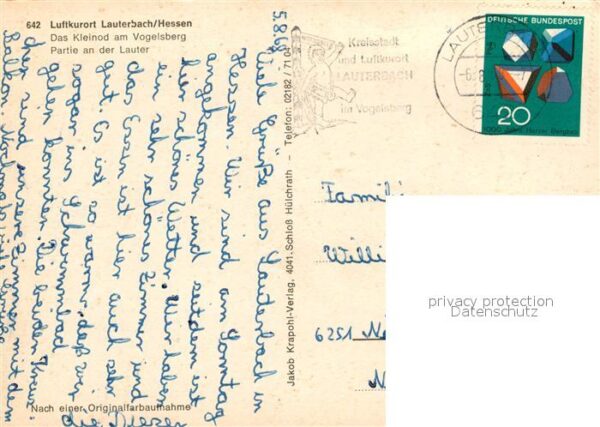 642 Luftkurort Lauterbach/Hessen
Das Kleinod am Vogelsberg
Partie an der Lauter
5.8.68
Viele Grüße aus Lauterbach in
Hessen. Wir sind am Sonntag
angekommen und seitdem ist
hier schönes Wetter. Wir haben
ein sehr schönes Zimmer und
das Essen ist hier auch sehr
gut. Es ist so warm, daß wir
sogar ins Schwimmbad
gehen konnten. Die beiden
sind unser Zimmer mit dem
Balkon. Nochmals viele Grüße
die
Nach einer Originalfarbaufnahme
Jakob Krapohl-Verlag, 4041 Schloß Hülchrath – Telefon: 02182 / 71 04
Kreisstadt
und Luftkurort
LAUTERBACH
im Vogelsberg
LAUTE
-6.8
DEUTSCHE BUNDESPOST
20
1000 Jahre Harzer Bergbau
Famili
Willi
6251 N
N
privacy protection
Datenschutz